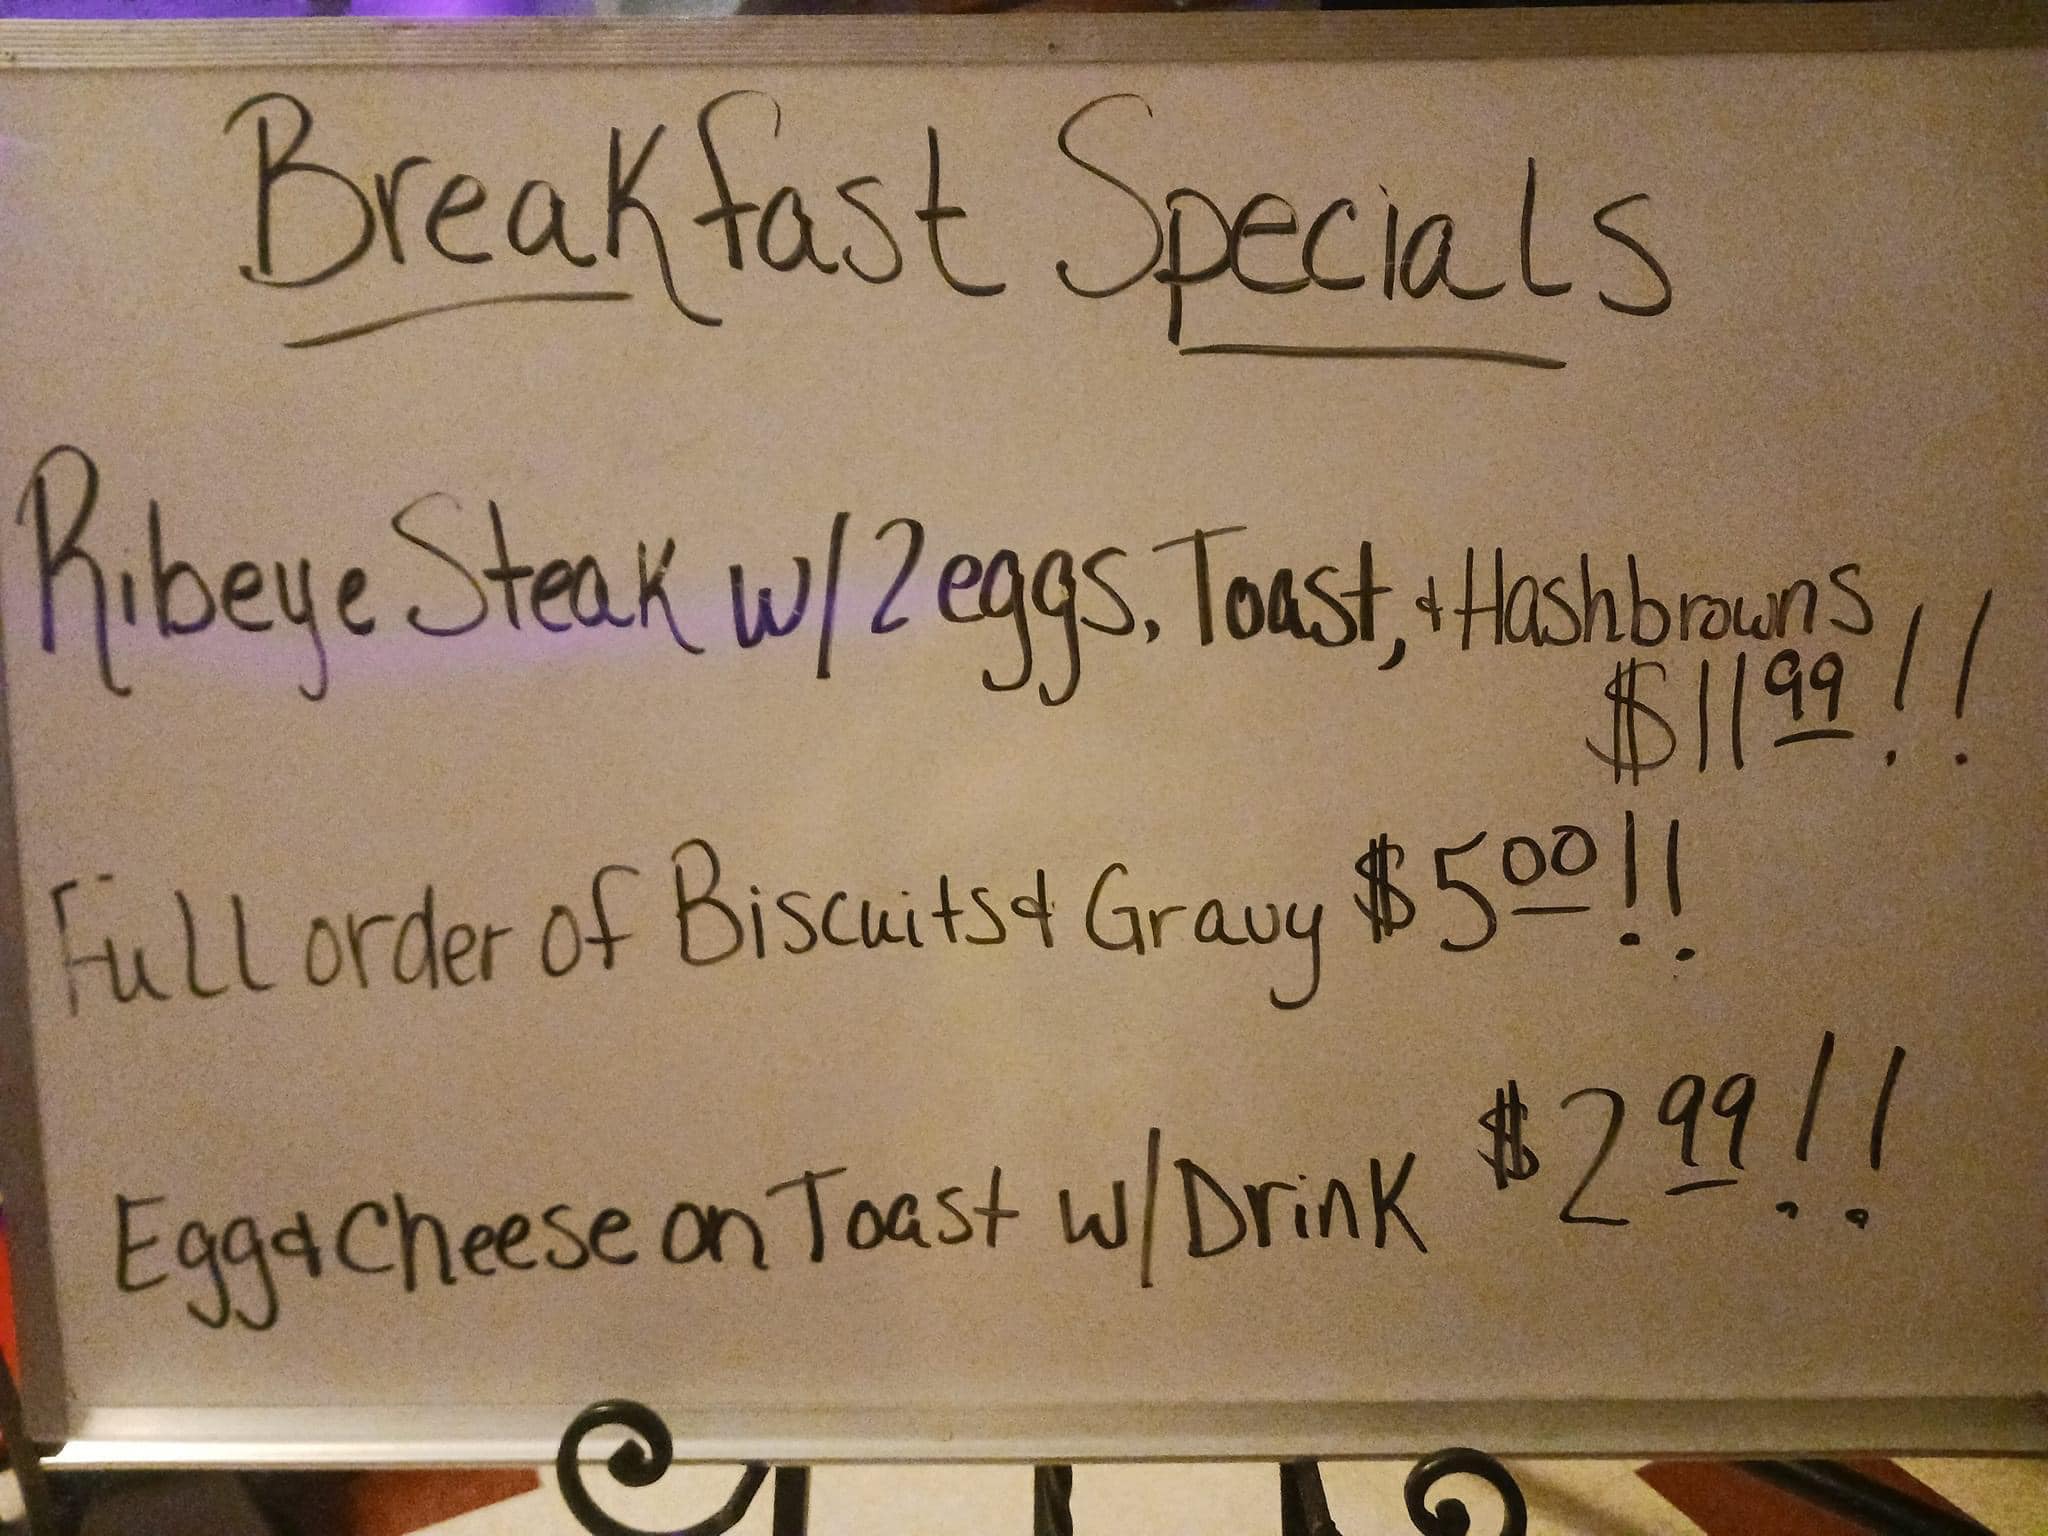 Breakfast Specials
Ribeye Steak w/ 2 eggs, Toast, & Hashbrowns
$11.99!!
Full order of Biscuits & Gravy $5.00!!
Egg & Cheese on Toast w/ Drink $2.99!!